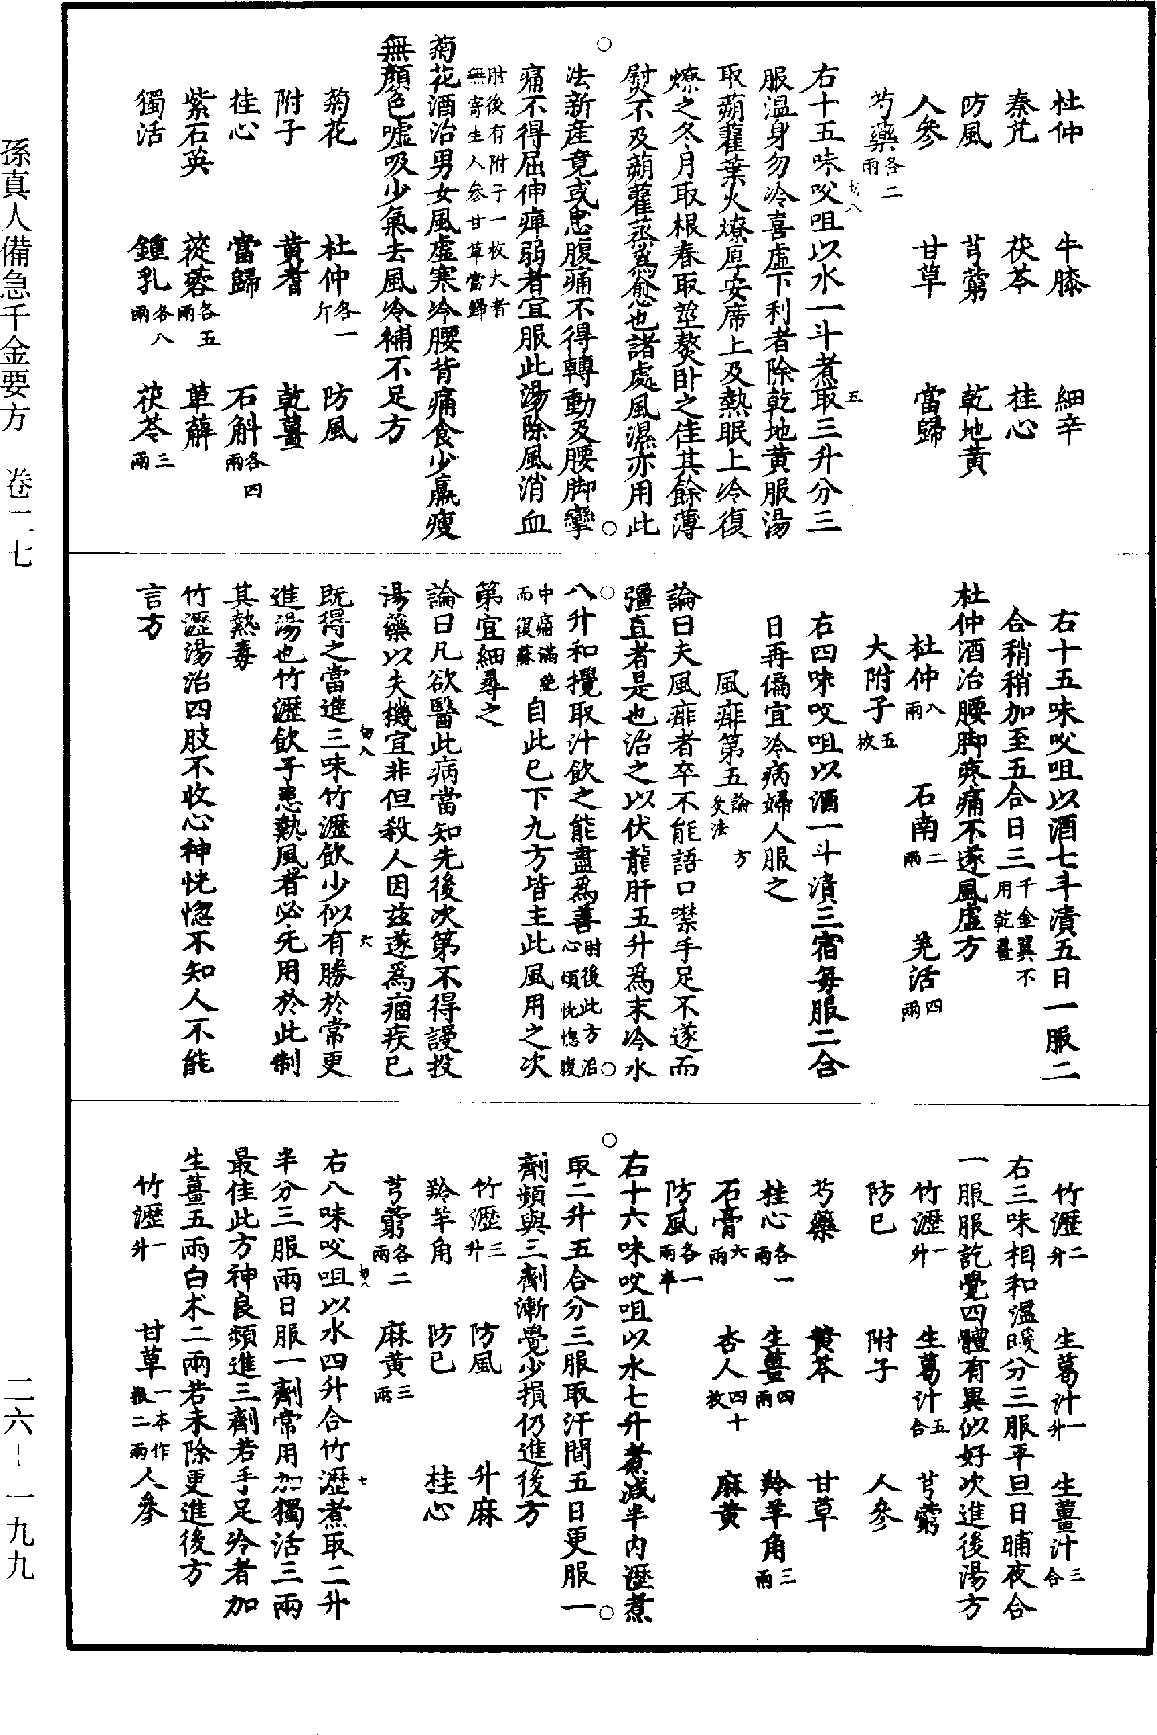 杜仲　牛膝　細辛
秦艽　茯苓　桂心
防風　芎藭　乾地黃
人參　甘草　當歸
芍藥各二兩
右十五味㕮咀以水一斗煮取三升分三
服溫身勿冷喜虛下利者除乾地黃服湯
取蒴藋葉火燎厚安席上及熱眠上冷復
燎之冬月取根春取莖熬卧之佳其餘薄
熨不及蒴藋蒸愈也諸處風濕亦用此
法新産竟或患腹痛不得轉動及腰脚攣
痛不得屈伸痺弱者宜服此湯除風消血
肘後有附子一枚大者無寄生人參甘草當歸
菊花酒治男女風虛寒冷腰背痛食少羸瘦
無顏色噓吸少氣去風冷補不足方
菊花　杜仲各一斤　防風
附子　黃耆　乾薑
桂心　當歸　石斛各四兩
紫石英　蓯蓉各五兩　萆薢
獨活　鍾乳各八兩　茯苓三兩
右十五味㕮咀以酒七斗漬五日一服二
合稍稍加至五合日三千金翼不用乾薑
杜仲酒治腰脚疼痛不遂風虛方
杜仲八兩　石南二兩　羌活四兩
大附子五枚
右四味㕮咀以酒一斗漬三宿每服二合
日再偏宜冷病婦人服之
風痱第五論　方　灸法
論曰夫風痱者卒不能語口噤手足不遂而
彊直者是也治之以伏龍肝五升爲末冷水
八升和攪取汁飲之能盡爲善肘後此方治心煩恍惚腹中痛滿絶而復蘇
自此已下九方皆主此風用之次
第宜細尋之
論曰凡欲醫此病當知先後次第不得謾投
湯藥以失機宜非但殺人因茲遂爲痼疾已
既得之當進三味竹瀝飲少似有勝於常更
進湯也竹瀝飲子患熱風者必先用於此制
其熱毒
竹瀝湯治四肢不收心神恍惚不知人不能
言方
竹瀝二升　生葛汁一升　生薑汁三合
右三味相和溫暖分三服平旦日晡夜合
一服服訖覺四體有異似好次進後湯方
竹瀝一升　生葛汁五合　芎藭
防已　附子　人參
芍藥　黃芩　甘草
桂心各一兩　生薑四兩　羚羊角三兩
石膏六兩　杏人四十枚　麻黃
防風各一兩半
右十六味㕮咀以水七升煮減半內瀝煮
取二升五合分三服取汗間五日更服一
劑頻與三劑漸覺少損仍進後方
竹瀝三升　防風　升麻
羚羊角　防已　桂心
芎藭各二兩　麻黃三兩
右八味㕮咀以水四升合竹瀝煮取二升
半分三服兩日服一劑常用加獨活三兩
最佳此方神良頻進三劑若手足冷者加
生薑五兩白术二兩若未除更進後方
竹瀝一升　甘草一本作二兩　人參
孫真人備急千金要方　卷二七
二六-一九九